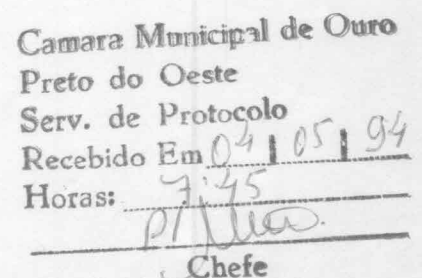 Camara Municipal de Ouro
Preto do Oeste
Serv. de Protocolo
Recebido Em 04 | 05 | 94
Horas: 7:45
P/
Chefe